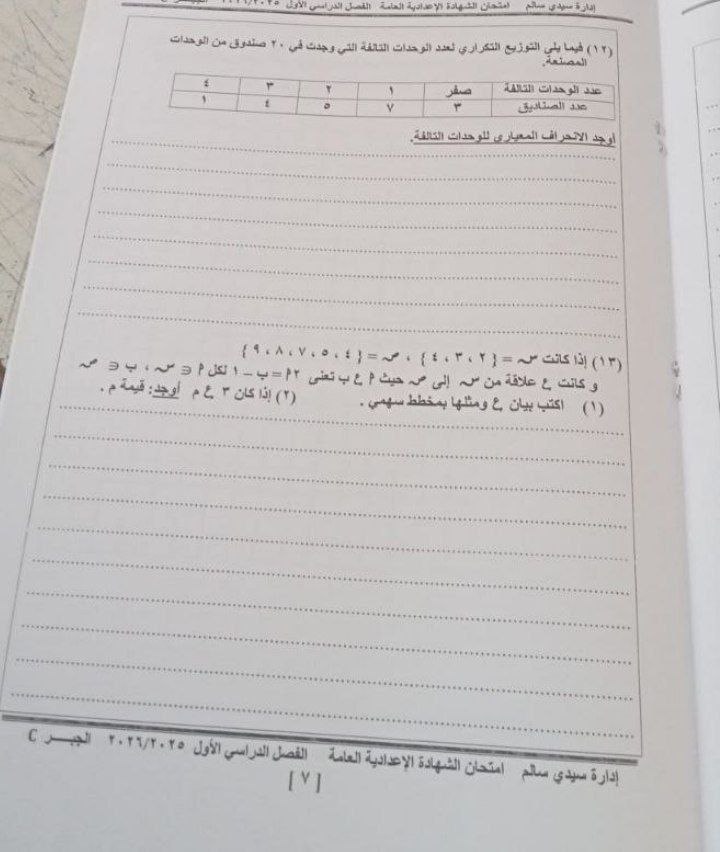 إدارة سيدي سالم امتحان الشهادة الإعدادية العامة الفصل الدراسي الأول
(١٢) فيما يلي التوزيع التكراري لعدد الوحدات التالفة التي وجدت في ٢٠ صندوق من الوحدات
المصنعة.
عدد الوحدات التالفة صفر ١ ٢ ٣ ٤
عدد الصناديق ٣ ٧ ٥ ٤ ١
أوجد الانحراف المعياري للوحدات التالفة.
(١٣) إذا كانت س = {٢ ، ٣ ، ٤} ، ص = {٤ ، ٥ ، ٧ ، ٨ ، ٩}
و كانت ع علاقة من س إلى ص حيث أ ع ب تعنى ٢أ = ب - ١ لكل أ ∈ س ، ب ∈ ص
(١) اكتب بيان ع ومثلها بمخطط سهمي . (٢) إذا كان ٣ ع م أوجد: قيمة م .
إدارة سيدي سالم امتحان الشهادة الإعدادية العامة الفصل الدراسي الأول ٢٠٢٦/٢٠٢٥ الجبـــر C
[ ٧ ]